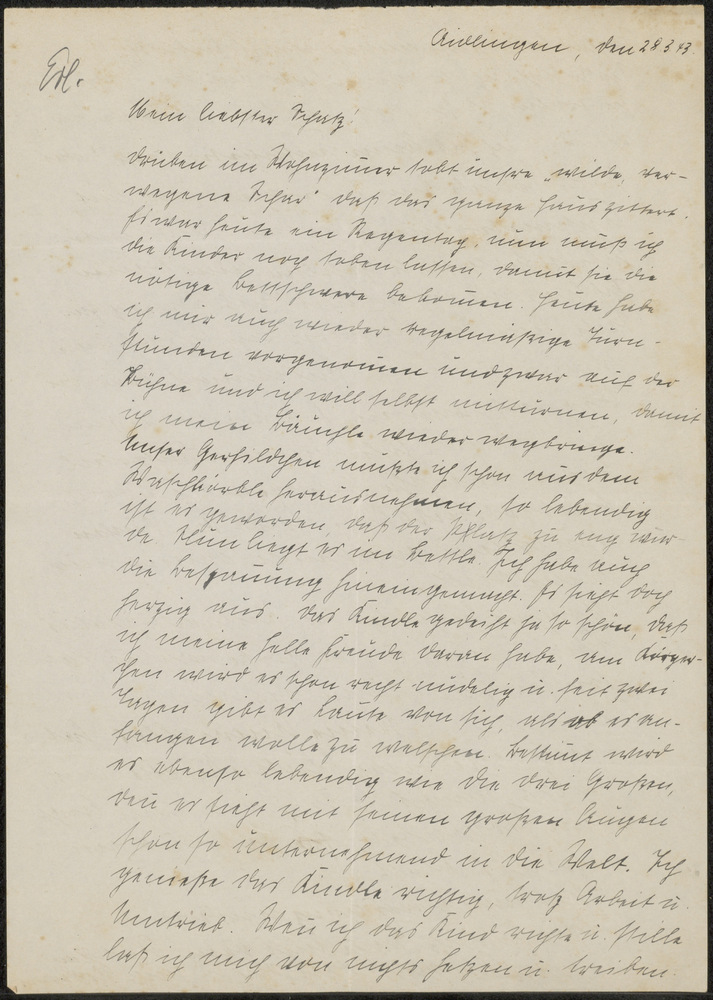 Aidlingen, den 28.3.43.
Erl.
Mein liebster Schatz!
Drüben im Wohnzimmer tobt unsre „wilde, ver-
wegene Schar" daß das ganze Haus zittert.
Es war heute ein Regentag, nun muß ich
die Kinder noch toben lassen, damit sie die
nötige Bettschwere bekommen. Heute habe
ich mir auch wieder regelmäßige Turn-
stunden vorgenommen und zwar auf der
Bühne und ich will selbst mitturnen, damit
ich mein Bäuchle wieder wegbringe.
Unser Gerhildchen mußte ich schon aus dem
Waschkörble herausnehmen, so lebendig
ist es geworden, daß der Platz zu eng wur-
de. Nun liegt es im Bettle. Ich habe auch
die Bespannung hineingemacht. Es sieht doch
herzig aus. Das Kindle gedeiht ja so schön, daß
ich meine helle Freude daran habe, am Körper-
chen wird es schon recht nudelig u. seit zwei
Tagen gibt es Laute von sich, als ob es an-
fangen wolle zu welschen. Bestimt wird
es ebenso lebendig wie die drei Großen,
den es sieht mit seinen großen Augen
schon so unternehmend in die Welt. Ich
genieße das Kindle richtig, trotz Arbeit u.
Umtrieb. Wen ich das Kind richte u. stille
laß ich mich von nichts hetzen u. treiben.